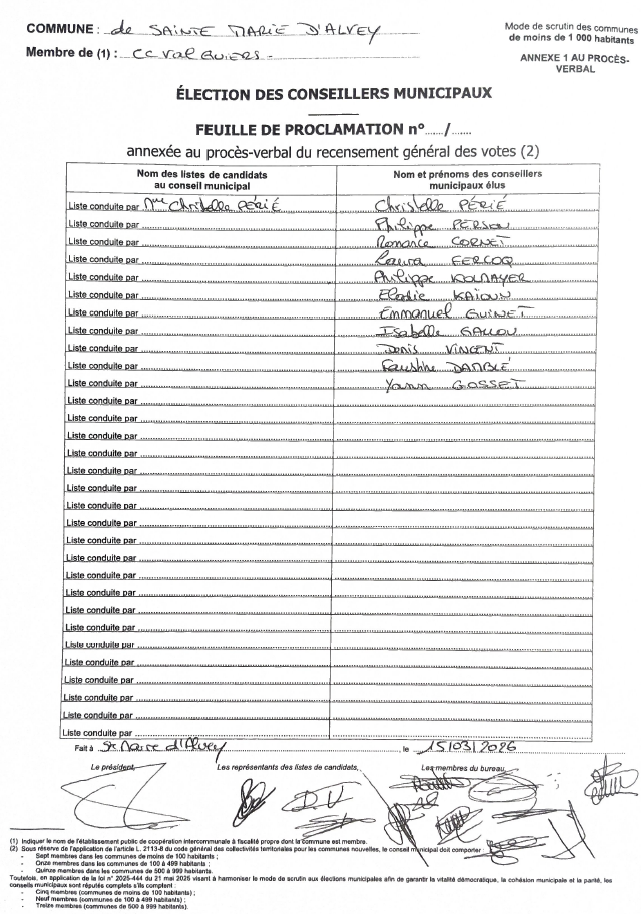 COMMUNE : de SAINTE MARIE D'ALVEY
Mode de scrutin des communes
de moins de 1 000 habitants
Membre de (1) : CC Val Guiers
ANNEXE 1 AU PROCÈS-
VERBAL
ÉLECTION DES CONSEILLERS MUNICIPAUX
FEUILLE DE PROCLAMATION n°....../......
annexée au procès-verbal du recensement général des votes (2)
Nom des listes de candidats
au conseil municipal
Nom et prénoms des conseillers
municipaux élus
Liste conduite par Mme Christelle PÉRIÉ Christelle PÉRIÉ
Liste conduite par Philippe PERSON
Liste conduite par Romance CORNET
Liste conduite par Laura FERCOQ
Liste conduite par Philippe
Liste conduite par Elodie KAÏOUN
Liste conduite par Emmanuel GUINET
Liste conduite par Isabelle GALLOU
Liste conduite par Denis VINCENT
Liste conduite par Faustine
Liste conduite par Yoann GOSSET
Liste conduite par
Liste conduite par
Liste conduite par
Liste conduite par
Liste conduite par
Liste conduite par
Liste conduite par
Liste conduite par
Liste conduite par
Liste conduite par
Liste conduite par
Liste conduite par
Liste conduite par
Liste conduite par
Liste conduite par
Liste conduite par
Liste conduite par
Liste conduite par
Liste conduite par
Liste conduite par
Fait à Ste Marie d'Alvey, le 15/03/2026
Le président, Les représentants des listes de candidats, Les membres du bureau,
(1) Indiquer le nom de l'établissement public de coopération intercommunale à fiscalité propre dont la commune est membre.
(2) Sous réserve de l'application de l'article L. 2113-8 du code général des collectivités territoriales pour les communes nouvelles, le conseil municipal doit comporter :
- Sept membres dans les communes de moins de 100 habitants ;
- Onze membres dans les communes de 100 à 499 habitants ;
- Quinze membres dans les communes de 500 à 999 habitants.
Toutefois, en application de la loi n° 2025-444 du 21 mai 2025 visant à harmoniser le mode de scrutin aux élections municipales afin de garantir la vitalité démocratique, la cohésion municipale et la parité, les
conseils municipaux sont réputés complets s'ils comptent :
- Cinq membres (communes de moins de 100 habitants) ;
- Neuf membres (communes de 100 à 499 habitants) ;
- Treize membres (communes de 500 à 999 habitants).